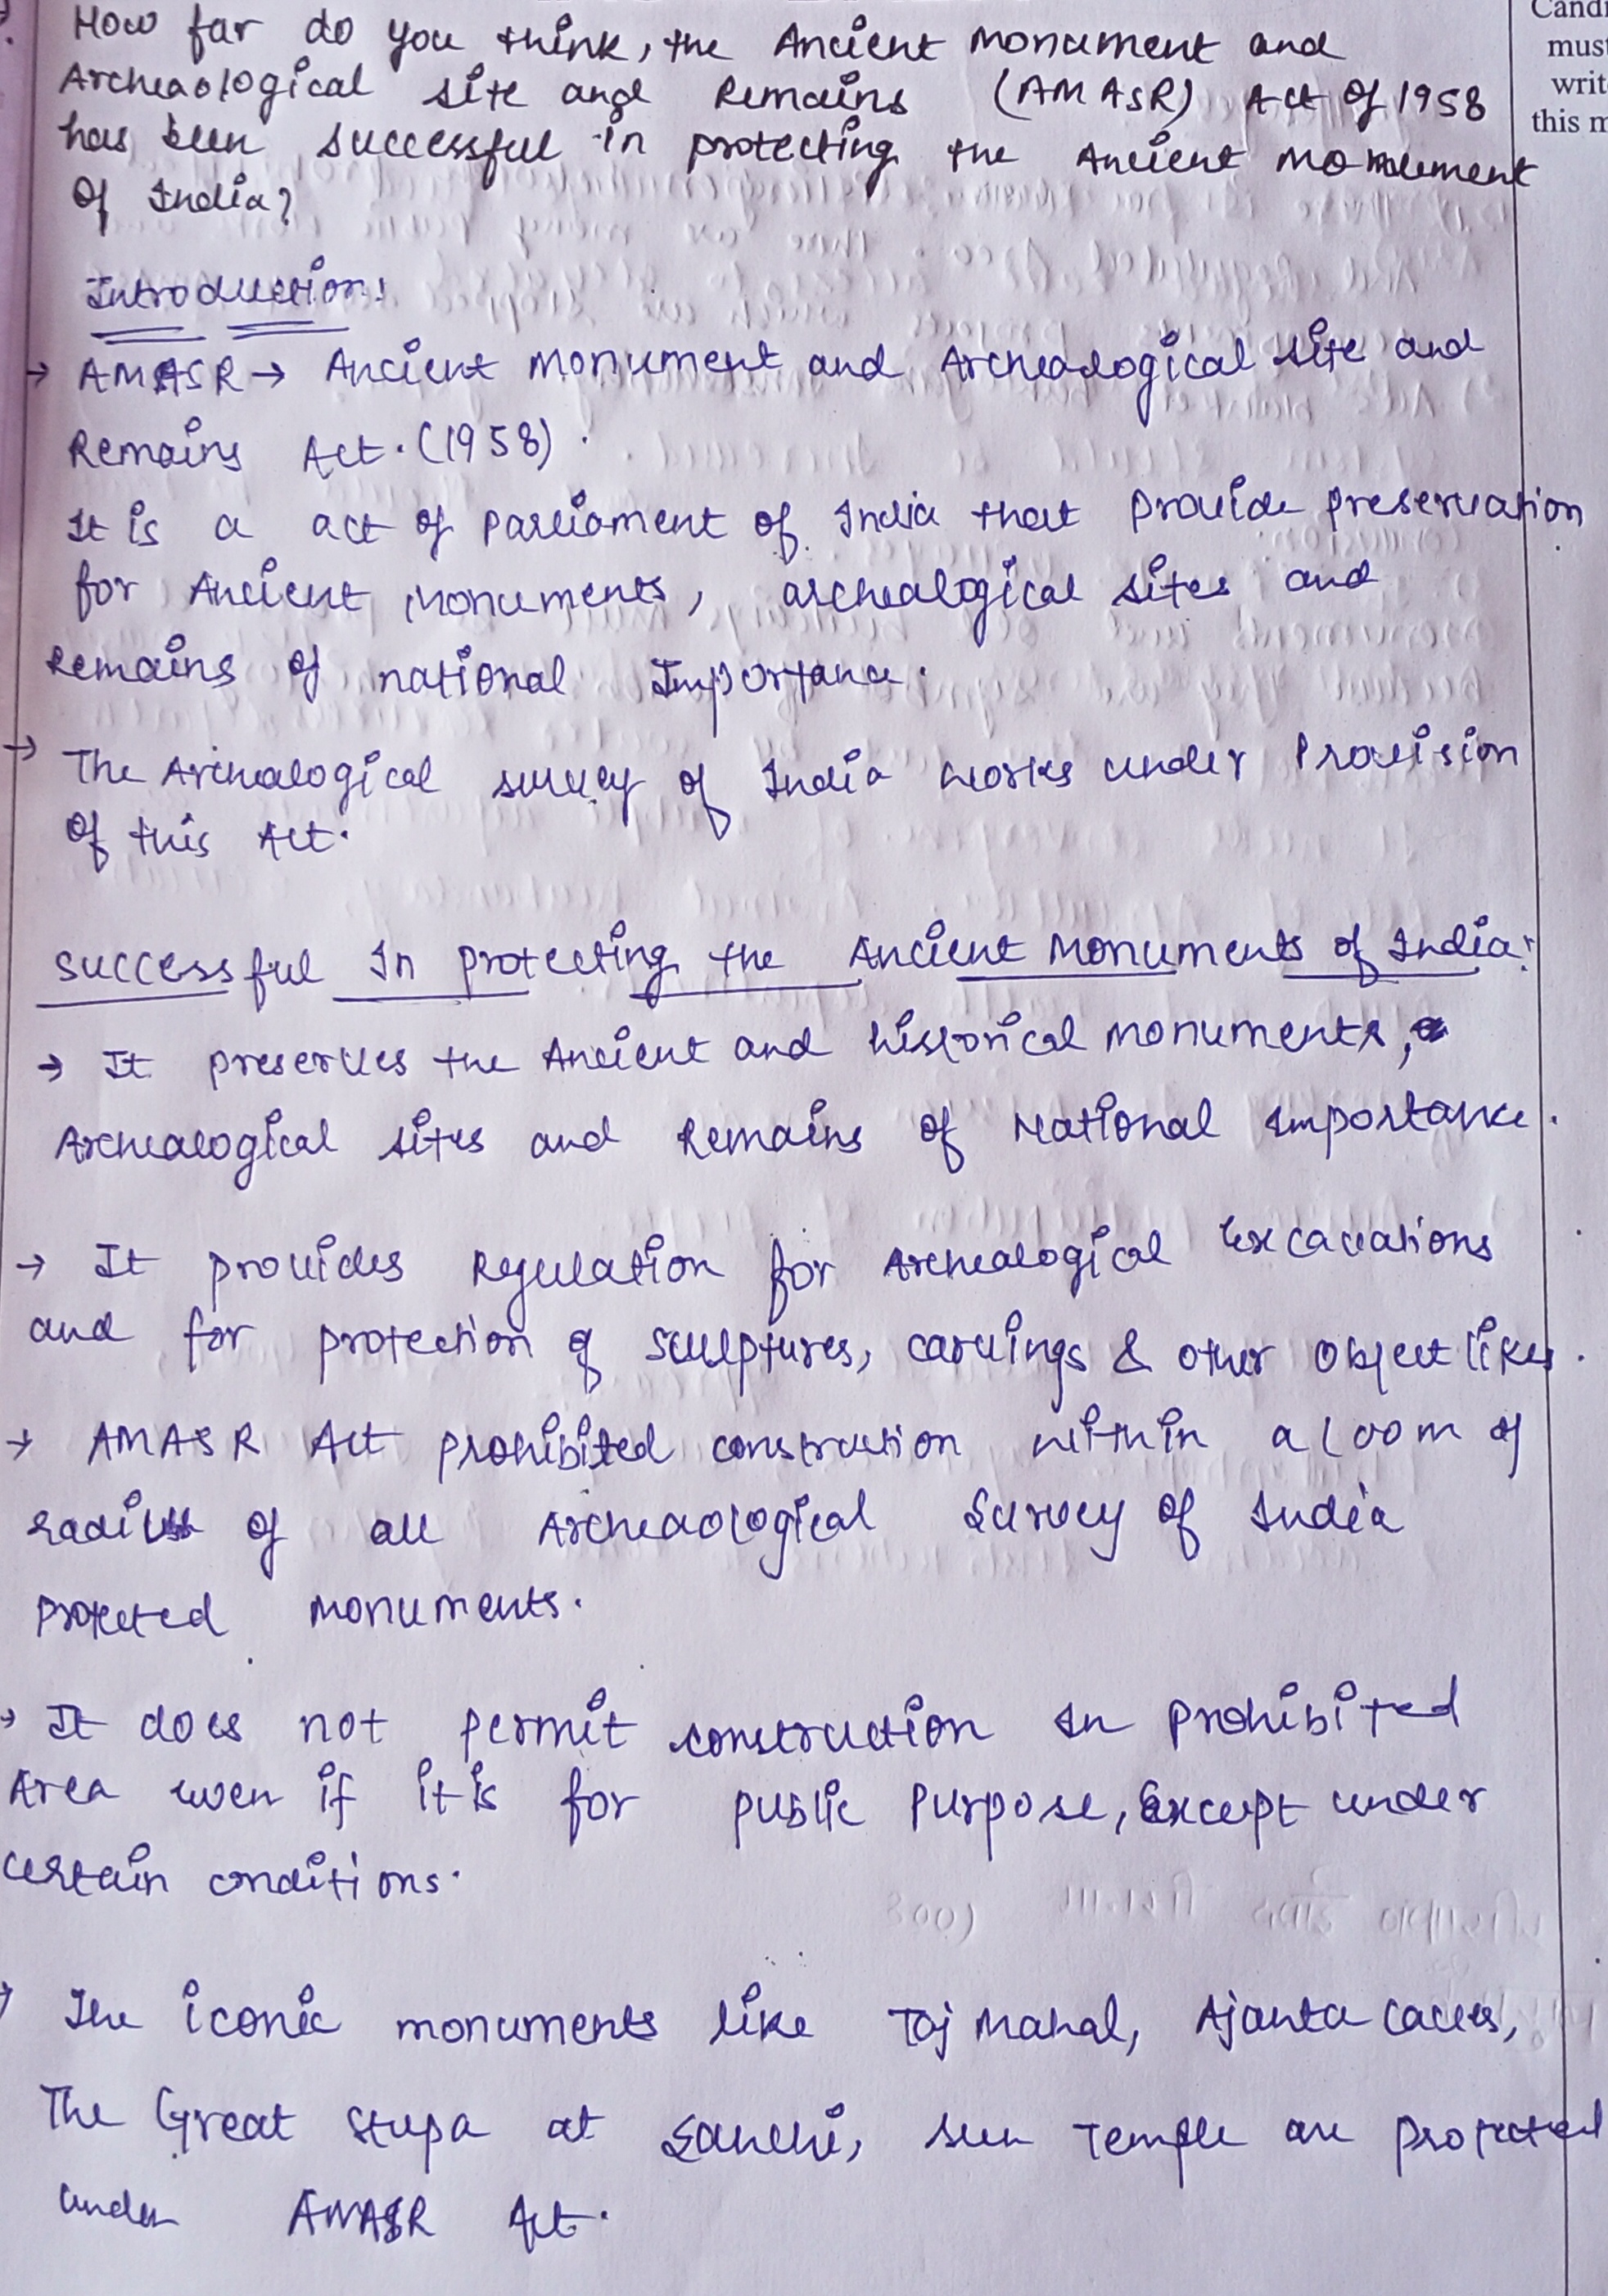 How far do you think, the Ancient Monument and
Archeaological site and Remains (AMASR) Act of 1958
has been successful in protecting the Ancient Monument
of India?
Candi
must
writ
this m
Introduction:
→ AMASR → Ancient Monument and Archealogical site and
Remains Act. (1958).
It is a act of parliament of India that provide preservation
for Ancient monuments, archealogical sites and
Remains of national Importance.
→ The Archealogical survey of India works under Provision
of this Act.
successful In protecting the Ancient Monuments of India:
→ It preserves the Ancient and historical monuments,
Archealogical sites and Remains of National Importance.
→ It provides Regulation for Archealogical Excavations
and for protection of sculptures, carvings & other object likes.
→ AMASR Act prohibited construction within a 100m of
radius of all Archeaological Survey of India
protected monuments.
→ It does not permit construction In Prohibited
Area even if it is for public Purpose, Except under
certain conditions.
→ The iconic monuments like Taj Mahal, Ajanta caves,
The Great Stupa at Sanchi, sun Temple are protected
under AMASR Act.